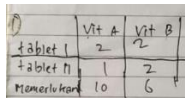 1)
Vit A Vit B
tablet I 2 2
tablet II 1 2
Memerlukan 10 6